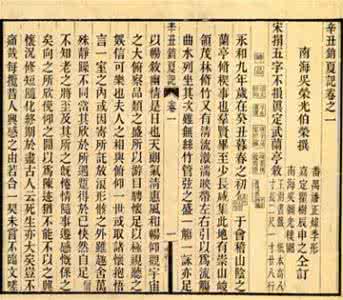 辛丑銷夏記卷之一
南海吳榮光伯榮撰
番禺潘正煒季彤
嘉定瞿樹辰中之仝訂
宋搨五字不損眞定武蘭亭敘
永和九年歲在癸丑暮春之初會于會稽山陰之
蘭亭脩稧事也羣賢畢至少長咸集此地有崇山峻
領茂林脩竹又有清流激湍暎帶左右引以爲流觴
曲水列坐其次雖無絲竹管弦之盛一觴一詠亦足
辛丑銷夏記 卷一
以暢敘幽情是日也天朗氣清惠風和暢仰觀宇宙
之大俯察品類之盛所以遊目騁懷足以極視聽之
娛信可樂也夫人之相與俯仰一世或取諸懷抱悟
言一室之內或因寄所託放浪形骸之外雖趣舍萬
殊靜躁不同當其欣於所遇蹔得於己快然自足
不知老之將至及其所之既惓情隨事遷感慨係之
矣向之所欣俛仰之閒以爲陳迹猶不能不以之興
懷況脩短隨化終期於盡古人云死生亦大矣豈不
痛哉每攬昔人興感之由若合一契未嘗不臨文嗟